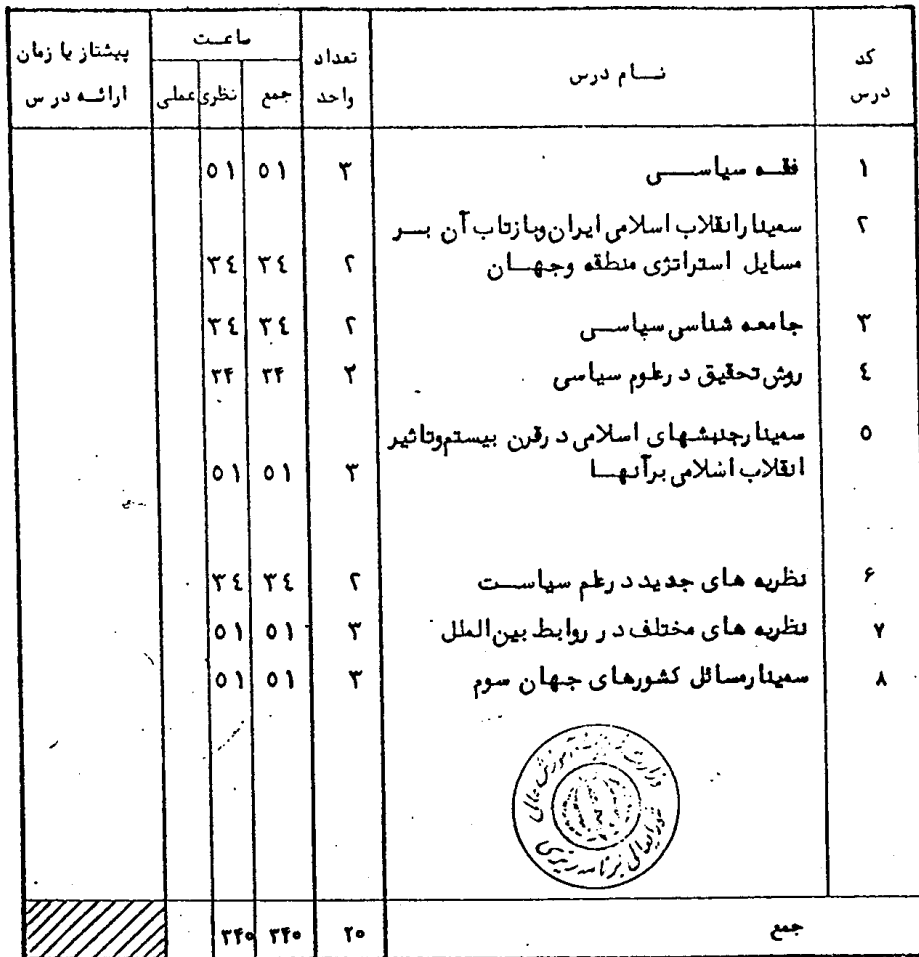 کد درس نام درس تعداد واحد ساعت پیشتاز یا زمان ارائه درس
جمع نظری عملی
۱ فقه سیاسی ۳ ۵۱ ۵۱
۲ سمینار انقلاب اسلامی ایران و بازتاب آن بر
مسایل استراتژی منطقه و جهان ۲ ۳۴ ۳۴
۳ جامعه شناسی سیاسی ۲ ۳۴ ۳۴
۴ روش تحقیق در علوم سیاسی ۲ ۳۴ ۳۴
۵ سمینار جنبشهای اسلامی در قرن بیستم و تاثیر
انقلاب اسلامی برآنها ۳ ۵۱ ۵۱
۶ نظریه های جدید در علم سیاست ۲ ۳۴ ۳۴
۷ نظریه های مختلف در روابط بین الملل ۳ ۵۱ ۵۱
۸ سمینار مسائل کشورهای جهان سوم ۳ ۵۱ ۵۱
وزارت فرهنگ و آموزش عالی
شورایعالی برنامه ریزی
جمع ۲۰ ۳۴۰ ۳۴۰